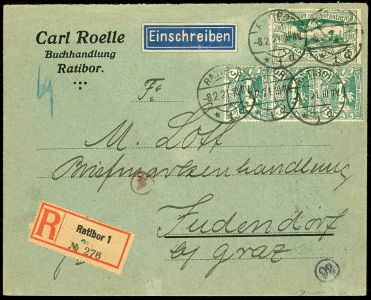 Carl Roelle
Buchhandlung
Ratibor.
Einschreiben
Fa.
M. Lott
Briefmarkenhandlung
Judendorf
b/ Graz
R
Ratibor 1
№ 276